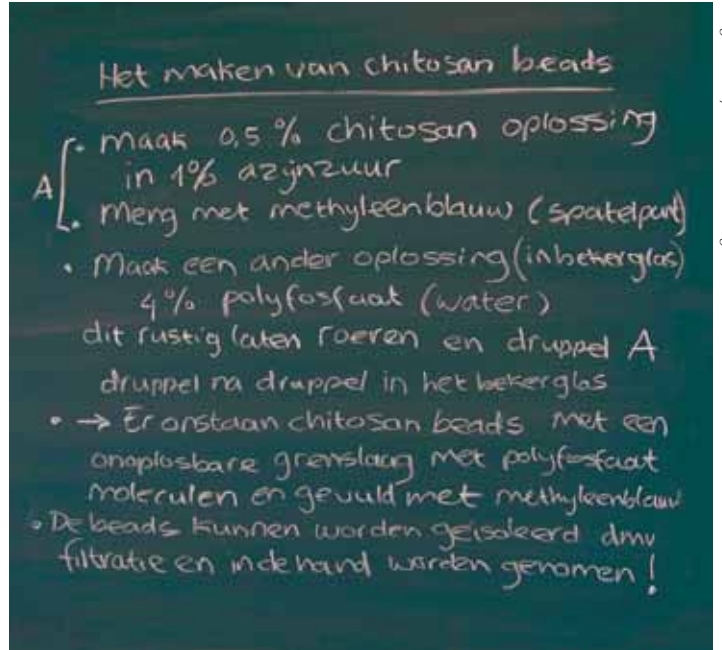 Het maken van chitosan beads
• Maak 0,5 % chitosan oplossing
A in 1% azijnzuur
• Meng met methyleenblauw (spatelpunt)
• Maak een ander oplossing (in bekerglas)
4 % polyfosfaat (water)
dit rustig laten roeren en druppel A
druppel na druppel in het bekerglas
• → Er onstaan chitosan beads met een
onoplosbare grenslaag met polyfosfaat
moleculen en gevuld met methyleenblauw
• De beads kunnen worden geïsoleerd dmv
filtratie en in de hand worden genomen !